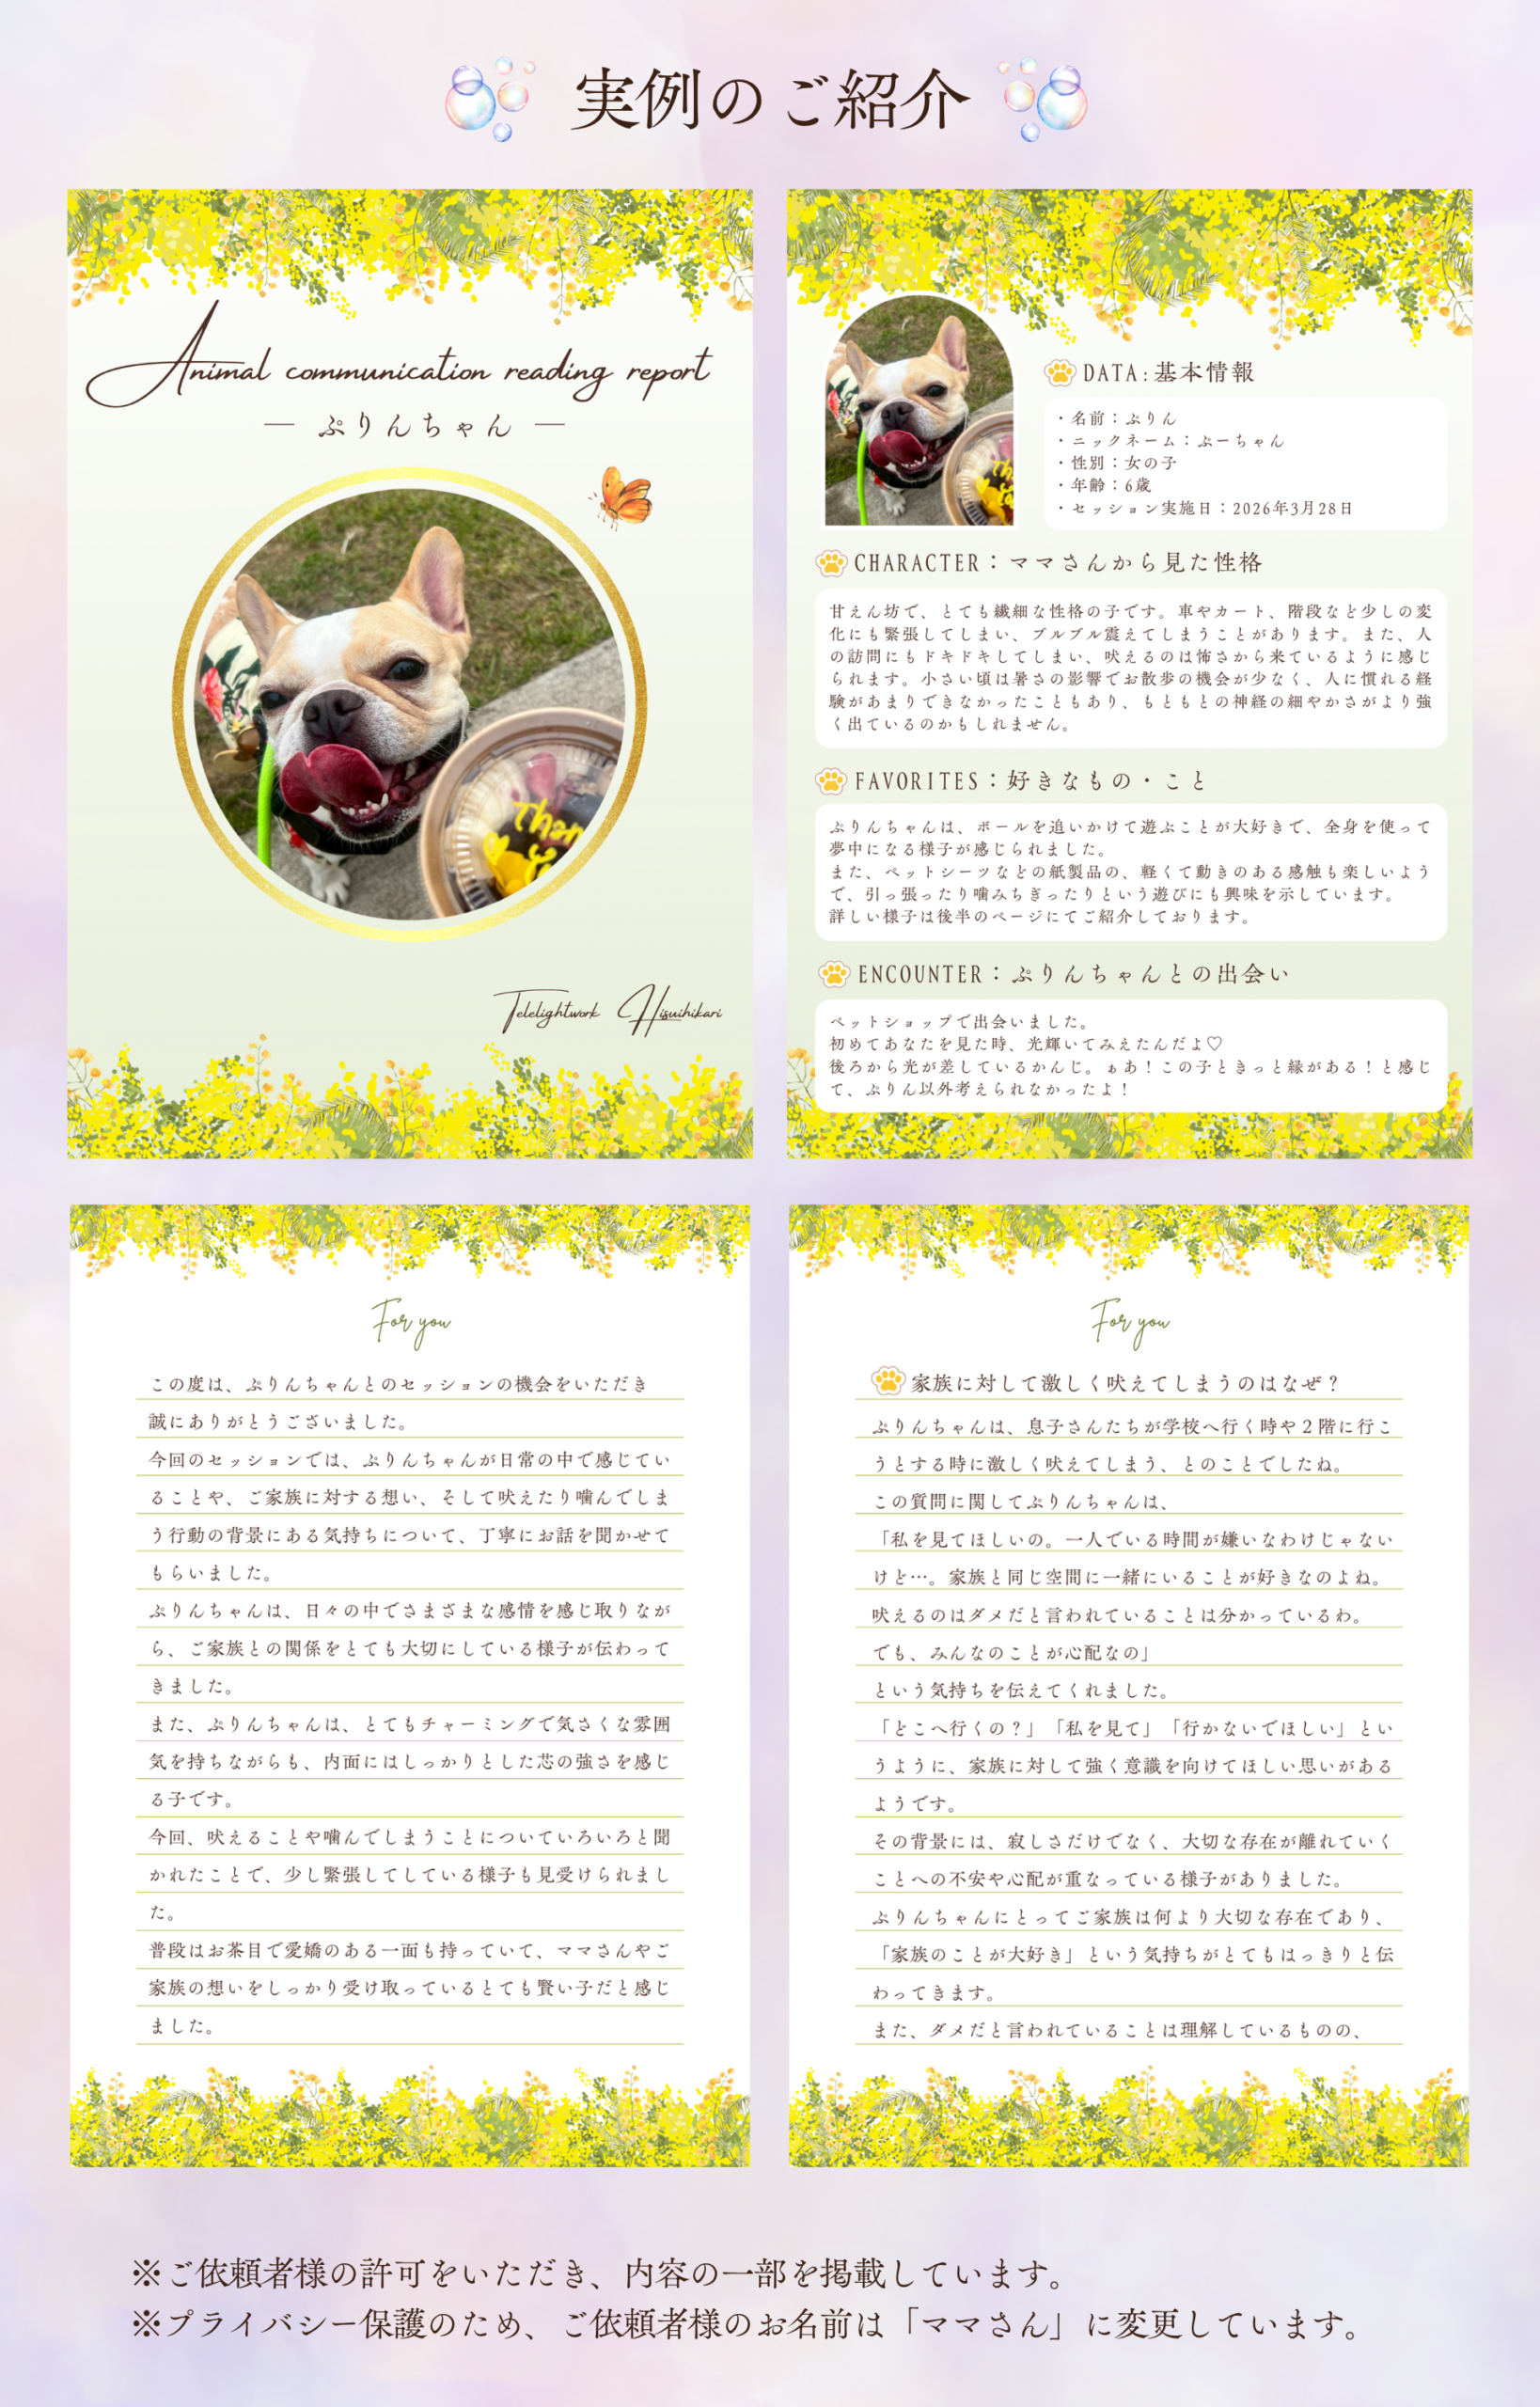 実例のご紹介
Animal communication reading report
― ぷりんちゃん ―
Than
Yo
Telelightwork Hisuihikari
DATA:基本情報
・名前：ぷりん
・ニックネーム：ぷーちゃん
・性別：女の子
・年齢：6歳
・セッション実施日：2026年3月28日
CHARACTER：ママさんから見た性格
甘えん坊で、とても繊細な性格の子です。車やカート、階段など少しの変
化にも緊張してしまい、ブルブル震えてしまうことがあります。また、人
の訪問にもドキドキしてしまい、吠えるのは怖さから来ているように感じ
られます。小さい頃は暑さの影響でお散歩の機会が少なく、人に慣れる経
験があまりできなかったこともあり、もともとの神経の細やかさがより強
く出ているのかもしれません。
FAVORITES：好きなもの・こと
ぷりんちゃんは、ボールを追いかけて遊ぶことが大好きで、全身を使って
夢中になる様子が感じられました。
また、ペットシーツなどの紙製品の、軽くて動きのある感触も楽しいよう
で、引っ張ったり噛みちぎったりという遊びにも興味を示しています。
詳しい様子は後半のページにてご紹介しております。
ENCOUNTER：ぷりんちゃんとの出会い
ペットショップで出会いました。
初めてあなたを見た時、光輝いてみえたんだよ♡
後ろから光が差しているかんじ。ぁあ！この子ときっと縁がある！と感じ
て、ぷりん以外考えられなかったよ！
For you
この度は、ぷりんちゃんとのセッションの機会をいただき
誠にありがとうございました。
今回のセッションでは、ぷりんちゃんが日常の中で感じてい
ることや、ご家族に対する想い、そして吠えたり噛んでしま
う行動の背景にある気持ちについて、丁寧にお話を聞かせて
もらいました。
ぷりんちゃんは、日々の中でさまざまな感情を感じ取りなが
ら、ご家族との関係をとても大切にしている様子が伝わって
きました。
また、ぷりんちゃんは、とてもチャーミングで気さくな雰囲
気を持ちながらも、内面にはしっかりとした芯の強さを感じ
る子です。
今回、吠えることや噛んでしまうことについていろいろと聞
かれたことで、少し緊張してしている様子も見受けられまし
た。
普段はお茶目で愛嬌のある一面も持っていて、ママさんやご
家族の想いをしっかり受け取っているとても賢い子だと感じ
ました。
For you
家族に対して激しく吠えてしまうのはなぜ？
ぷりんちゃんは、息子さんたちが学校へ行く時や２階に行こ
うとする時に激しく吠えてしまう、とのことでしたね。
この質問に関してぷりんちゃんは、
「私を見てほしいの。一人でいる時間が嫌いなわけじゃない
けど…。家族と同じ空間に一緒にいることが好きなのよね。
吠えるのはダメだと言われていることは分かっているわ。
でも、みんなのことが心配なの」
という気持ちを伝えてくれました。
「どこへ行くの？」「私を見て」「行かないでほしい」とい
うように、家族に対して強く意識を向けてほしい思いがある
ようです。
その背景には、寂しさだけでなく、大切な存在が離れていく
ことへの不安や心配が重なっている様子がありました。
ぷりんちゃんにとってご家族は何より大切な存在であり、
「家族のことが大好き」という気持ちがとてもはっきりと伝
わってきます。
また、ダメだと言われていることは理解しているものの、
※ご依頼者様の許可をいただき、内容の一部を掲載しています。
※プライバシー保護のため、ご依頼者様のお名前は「ママさん」に変更しています。